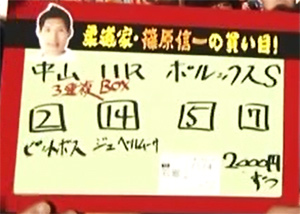 柔道家・篠原信一の買い目!
中山 11R ポルックスS
3連複BOX
2 14 5 7
ピットボス ジェベルムーサ
2000円
ずつ